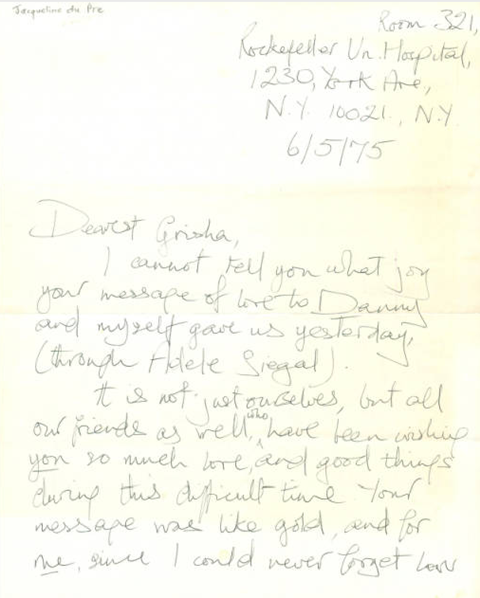 Jacqueline du Pre
Room 321,
Rockefeller Un. Hospital,
1230, York Ave,
N.Y. 10021., N.Y.
6/5/75
Dearest Grisha,
I cannot tell you what joy
your message of love to Danny
and myself gave us yesterday,
(through Adele Siegal).
It is not just ourselves, but all
our friends as well, who have been wishing
you so much love, and good things
during this difficult time. Your
message was like gold, and for
me, since I could never forget how